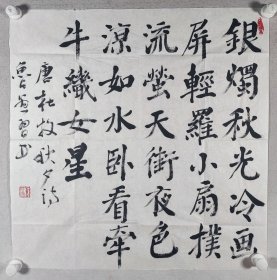 銀燭秋光冷画
屏輕羅小扇撲
流螢天街夜色
涼如水卧看牽
牛織女星
唐杜牧秋夕诗